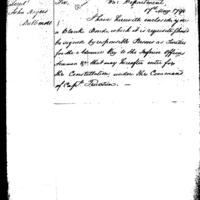 John Rogers
Baltimore
Sir, War Department,
17th May 1798
I have herewith enclosed you
a blank Bond which it is requisite should
be signed by responsible Persons as Sureties
for the Advance Pay to the Inferior Officers
Seamen &c. that may hereafter enter for
the Constellation under the Command
of Capt. Truxtun.